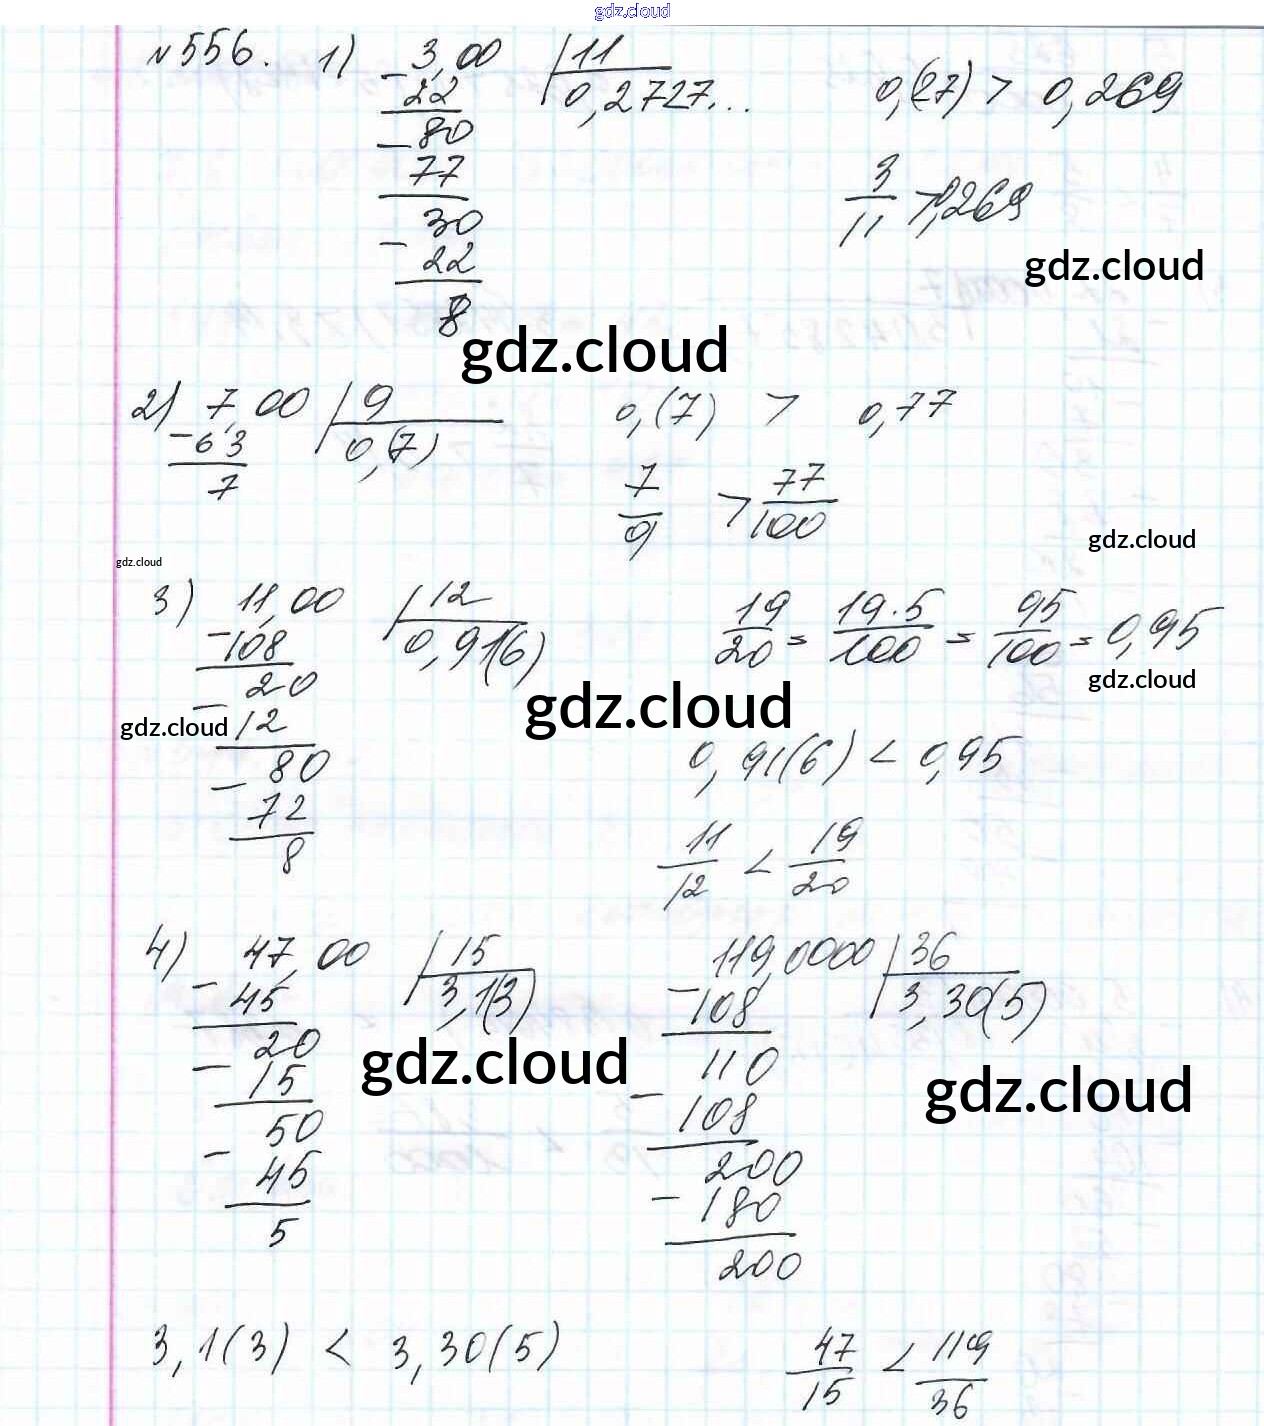 gdz.cloud
№556. 1) 3,00 | 11
0,2727...
- 22
80
- 77
30
- 22
8
0,(27) > 0,269
3/11 > 0,269
gdz.cloud
gdz.cloud
2) 7,00 | 9
0,(7)
- 63
7
0,(7) > 0,77
7/9 > 77/100
gdz.cloud
gdz.cloud
3) 11,00 | 12
0,91(6)
- 108
20
- 12
80
- 72
8
19/20 = 19·5/100 = 95/100 = 0,95
gdz.cloud
gdz.cloud
gdz.cloud
0,91(6) < 0,95
11/12 < 19/20
4) 47,00 | 15
3,1(3)
- 45
20
- 15
50
- 45
5
119,0000 | 36
3,30(5)
- 108
110
- 108
200
- 180
200
gdz.cloud
gdz.cloud
3,1(3) < 3,30(5)
47/15 < 119/36